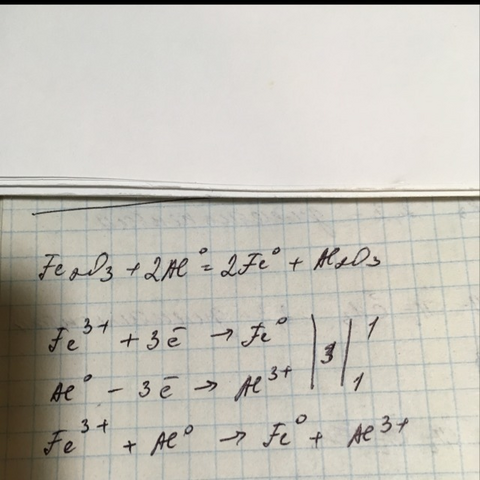 Fe₂O₃ + 2Al⁰ = 2Fe⁰ + Al₂O₃
Fe³⁺ + 3ē → Fe⁰ | 3 | 1
Al⁰ - 3ē → Al³⁺ | | 1
Fe³⁺ + Al⁰ → Fe⁰ + Al³⁺